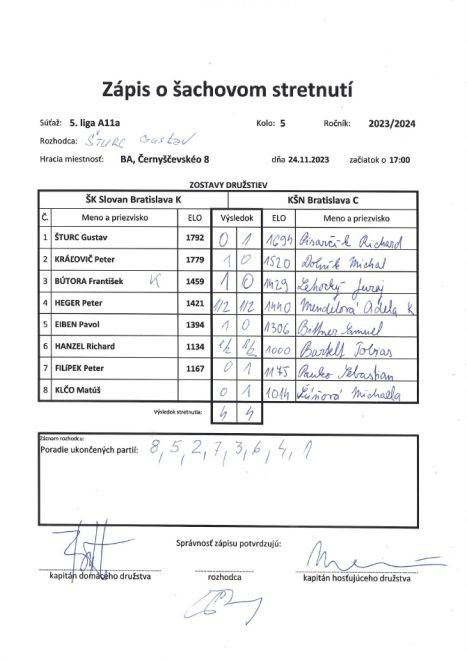 Zápis o šachovom stretnutí
Súťaž: 5. liga A11a Kolo: 5 Ročník: 2023/2024
Rozhodca: ŠTURC Gustav
Hracia miestnosť: BA, Černyševského 8 dňa 24.11.2023 začiatok o 17:00
ZOSTAVY DRUŽSTIEV
ŠK Slovan Bratislava K KŠN Bratislava C
Č. Meno a priezvisko ELO Výsledok ELO Meno a priezvisko
1 ŠTURC Gustav 1792 0 1 1694 Pisarčík Richard
2 KRÁĽOVIČ Peter 1779 1 0 1520 Dolník Michal
3 BÚTORA František K 1459 1 0 1429 Lehocký Juraj
4 HEGER Peter 1421 1/2 1/2 1440 Mendelová Adela K
5 EIBEN Pavol 1394 1 0 1306 Samuel
6 HANZEL Richard 1134 1/2 1/2 1000 Bartelt Tobias
7 FILÍPEK Peter 1167 0 1 1175 Panko Sebastian
8 KLČO Matúš 0 1 1014 Michaela
Výsledok stretnutia: 4 4
Záznam rozhodcu:
Poradie ukončených partií: 8, 5, 2, 7, 3, 6, 4, 1
Správnosť zápisu potvrdzujú:
kapitán domáceho družstva rozhodca kapitán hosťujúceho družstva